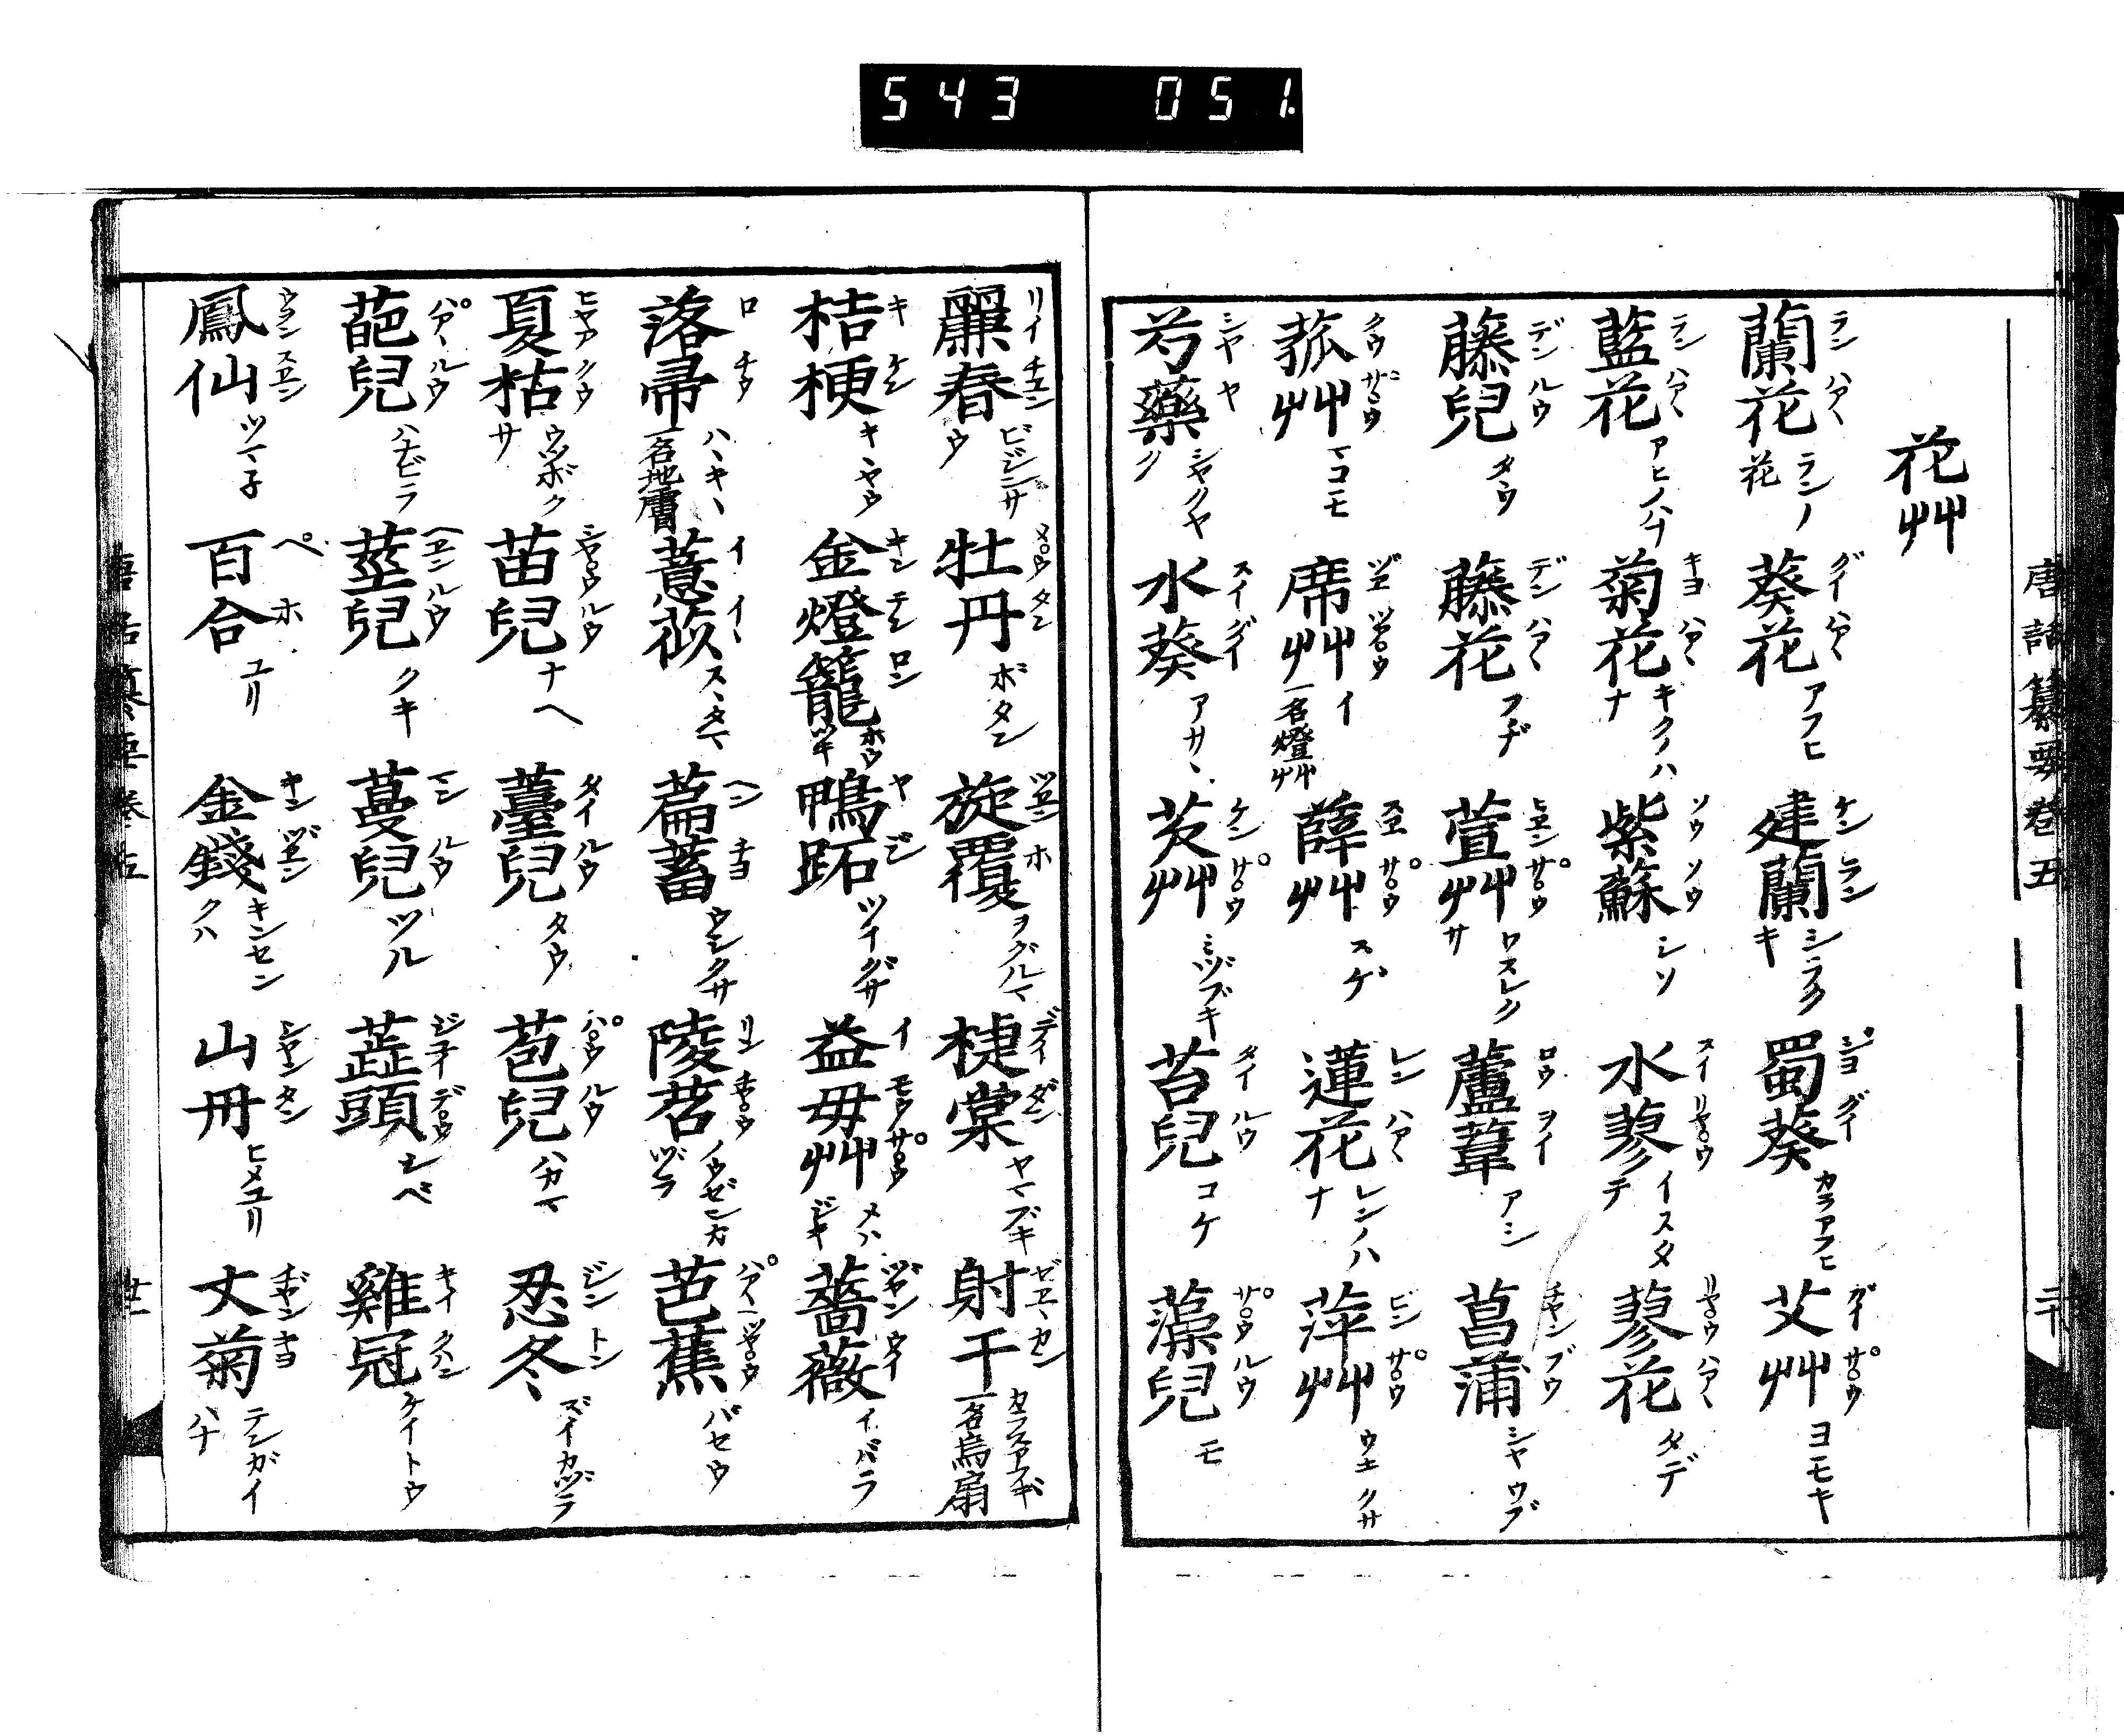 543 051
唐話纂要 卷五 三十
花艸
ランハアヽ グイハアヽ ケンラン ジヨグイ ガイサ゜○ウ
蘭花 ランノ花 葵花 アフヒ 建蘭 シラン 蜀葵 カラアフヒ 艾艸 ヨモキ
ランハアヽ キヨハアヽ ソウソウ スイリヤ○ウ リヤ○ウハアヽ
藍花 アヒノハナ 菊花 キクノハナ 紫蘇 シソ 水蓼 イスタテ 蓼花 タデ
デンルウ デンハアヽ ヒエンサ゜○ウ ロウヲイ チヤンブウ
藤兒 タウ 藤花 フヂ 萱艸 ワスレクサ 蘆葦 アシ 菖蒲 シヤウブ
クウサ゜○ウ ヅエツア○ウ スエサ゜○ウ レンハアヽ ビンサ゜○ウ
菰艸 マコモ 席艸 イ 一名燈艸 薛艸 スゲ 蓮花 レンノハナ 萍艸 ウエクサ
シヤヤ スイグイ ケンサ゜○ウ タイルウ サ゜○ウルウ
芍藥 シヤクヤク 水葵 アサヽ 芡艸 ミヅブキ 苔兒 コケ 藻兒 モ
リイチユン メ○ウタン ヅエンホ デイダン ゼエヽカン
麗春 ビジンサウ 牡丹 ボタン 旋覆 ヲグルマ 棣棠 ヤマブキ 射干 カラスアフギ 一名烏扇
キケン キンテンロン ヤジ イモウサ゜○ウ ヅヤンウイ
桔梗 キヽヤウ 金燈籠 ホウヅキ 鴨跖 ツイグサ 益毋艸 メハジキ 薔薇 イバラ
ロチウ イイヽ ヘンチヨ リンチヤ○ウ パアヽツヤ○ウ
落帚 ハヽキヽ 一名地膚 薏苡 スヽタマ 萹蓄 ウシクサ 陵苕 ノウゼンカヅラ 芭蕉 バセウ
ヒヤアクウ ミヤ○ウルウ タイルウ パ○ウルウ ジントン
夏枯 ウツボクサ 苗兒 ナヘ 薹兒 タウ 苞兒 ハカマ 忍冬 ズイカヅラ
パアヽルウ ヘエンルウ マンルウ デ○ウ キイクハン
葩兒 ハナビラ 莖兒 クキ 蔓兒 ツル 蕋頭 シベ 雞冠 ケイトウ
ウヲンスエン ペホ キンヅエン シヤンタン ヂヤンキヨ
鳳仙 ツマ子 百合 ユリ 金錢 キンセンクハ 山丹 ヒメユリ 丈菊 テンガイハナ
唐話纂要卷五 廿一